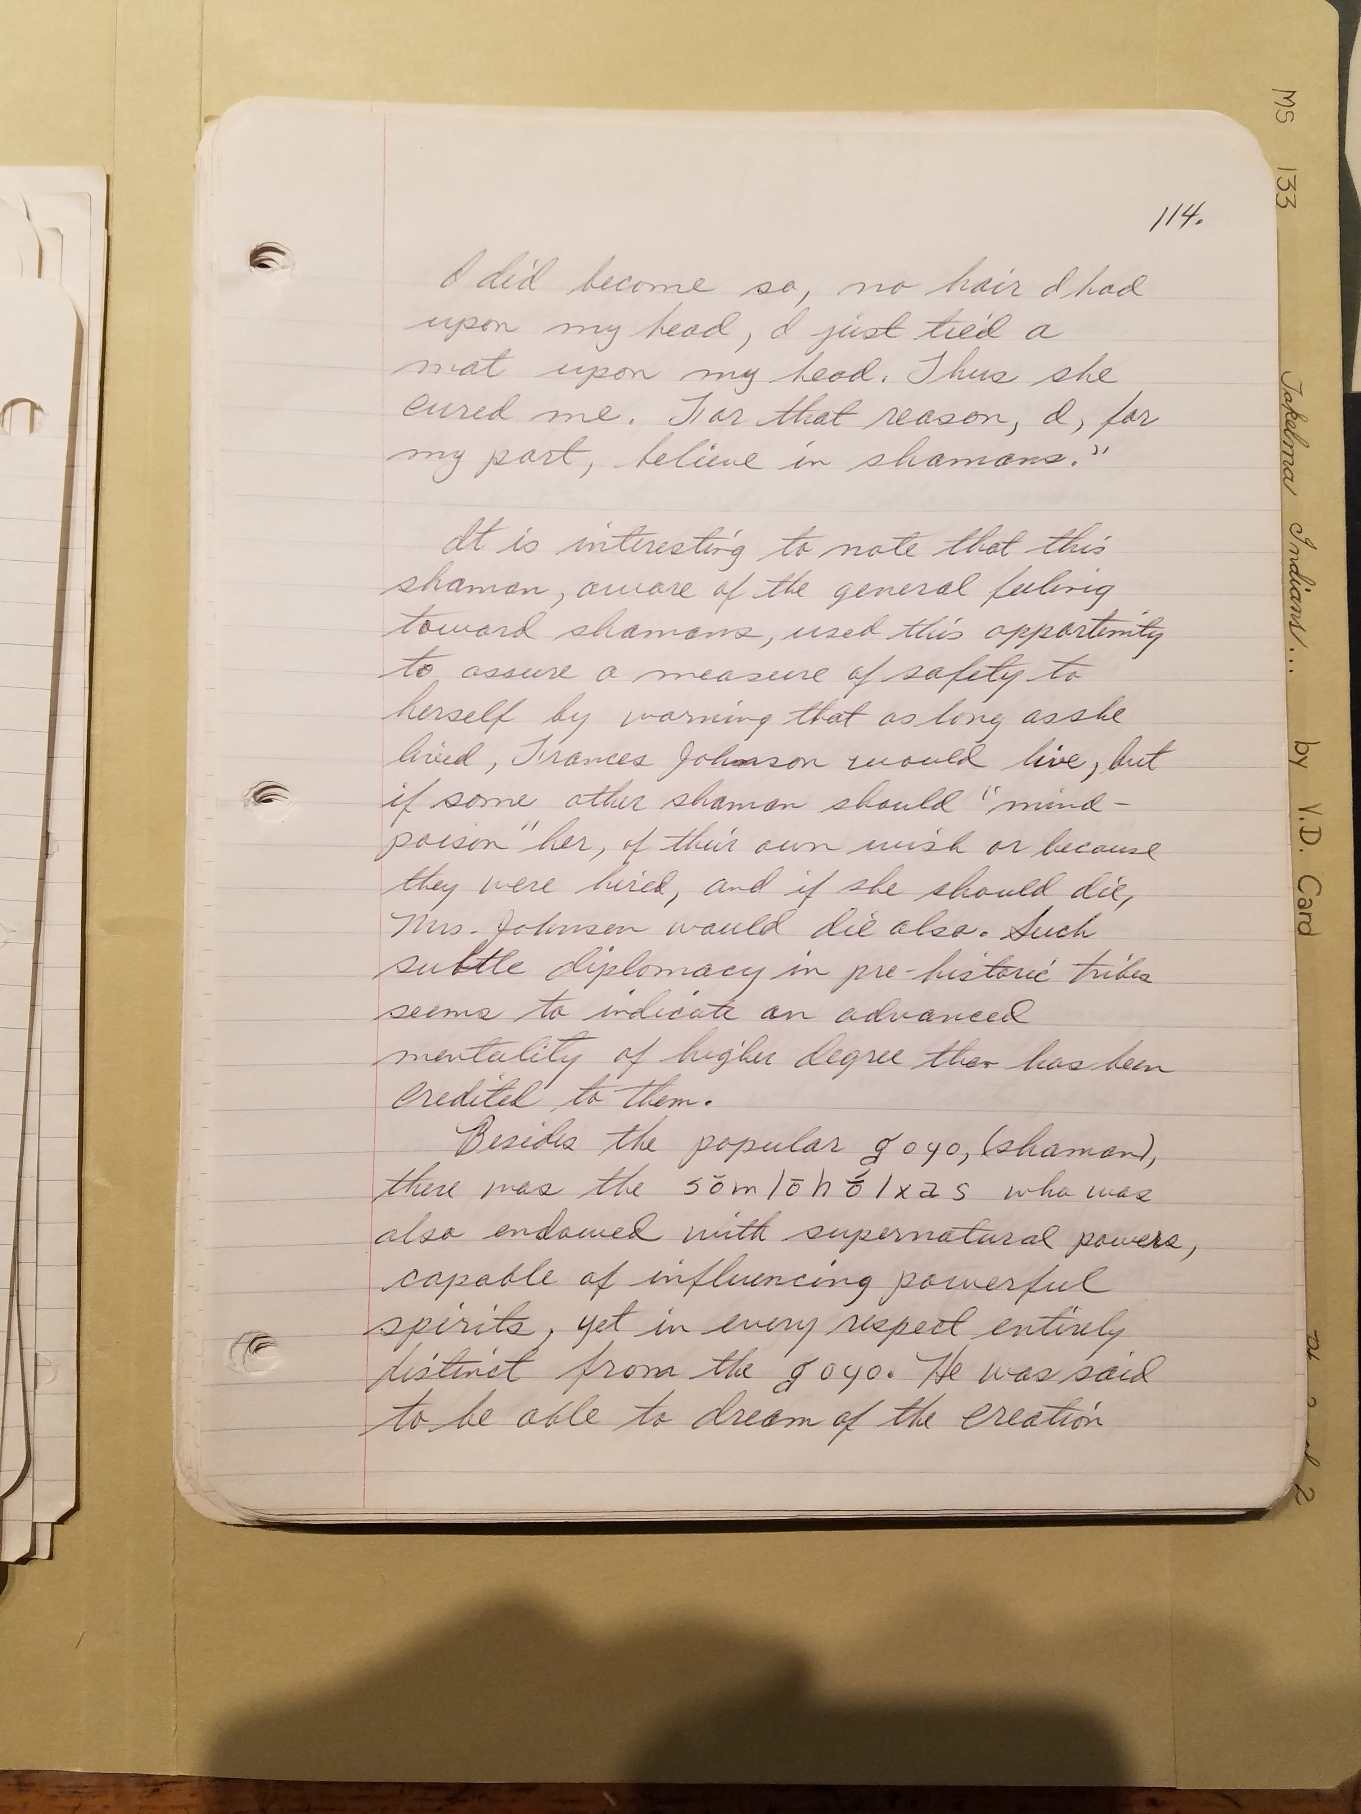 114.
I did become so, no hair I had
upon my head, I just tied a
mat upon my head. Thus she
cured me. For that reason, I, for
my part, believe in shamans."
It is interesting to note that this
shaman, aware of the general feeling
toward shamans, used this opportunity
to assure a measure of safety to
herself by warning that as long as she
lived, Frances Johnson would live, but
if some other shaman should "mind-
poison" her, of their own wish or because
they were hired, and if she should die,
Mrs. Johnson would die also. Such
subtle diplomacy in pre-historic tribes
seems to indicate an advanced
mentality of higher degree than has been
credited to them.
Besides the popular goyo, (shaman),
there was the who was
also endowed with supernatural powers,
capable of influencing powerful
spirits, yet in every respect entirely
distinct from the goyo. He was said
to be able to dream of the creation
MS 133 Takelma Indians... by V.D. Card